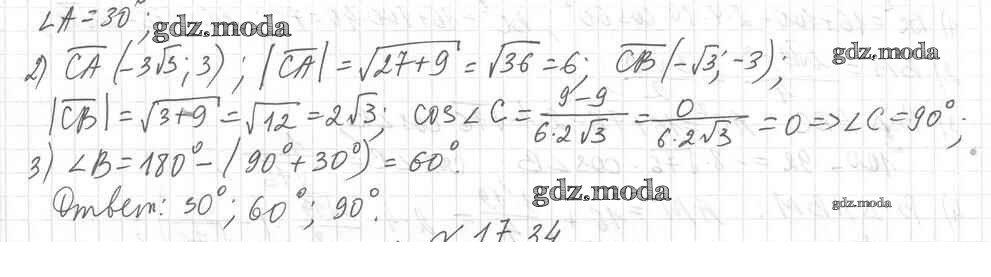 ∠A = 30°;
gdz.moda
2) CA (-3√3; 3); |CA| = √27+9 = √36 = 6; CB (-√3; -3);
gdz.moda
|CB| = √3+9 = √12 = 2√3; cos∠C = 9-9 / 6·2√3 = 0 / 6·2√3 = 0 => ∠C = 90°;
3) ∠B = 180° - (90° + 30°) = 60°.
gdz.moda
Ответ: 30°; 60°; 90°.
gdz.moda
№ 17.34